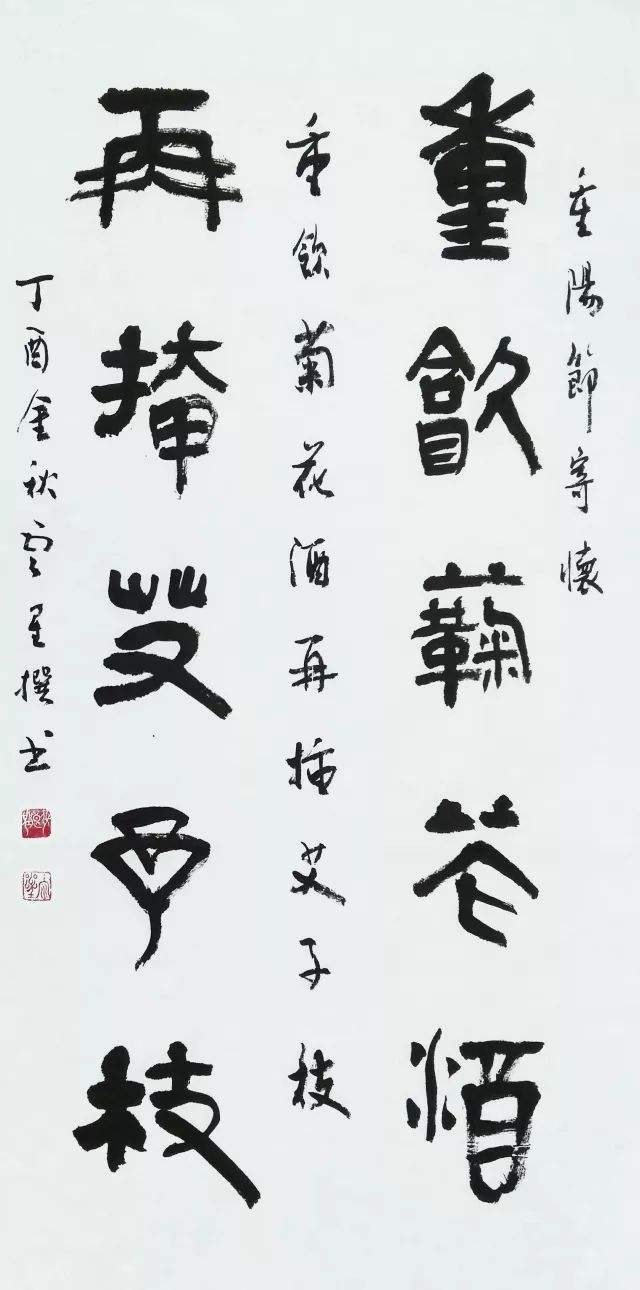 重陽節寄懷
重飲蘜花酒
重飲菊花酒再插艾子枝
再插艾子枝
丁酉金秋雲星撰书